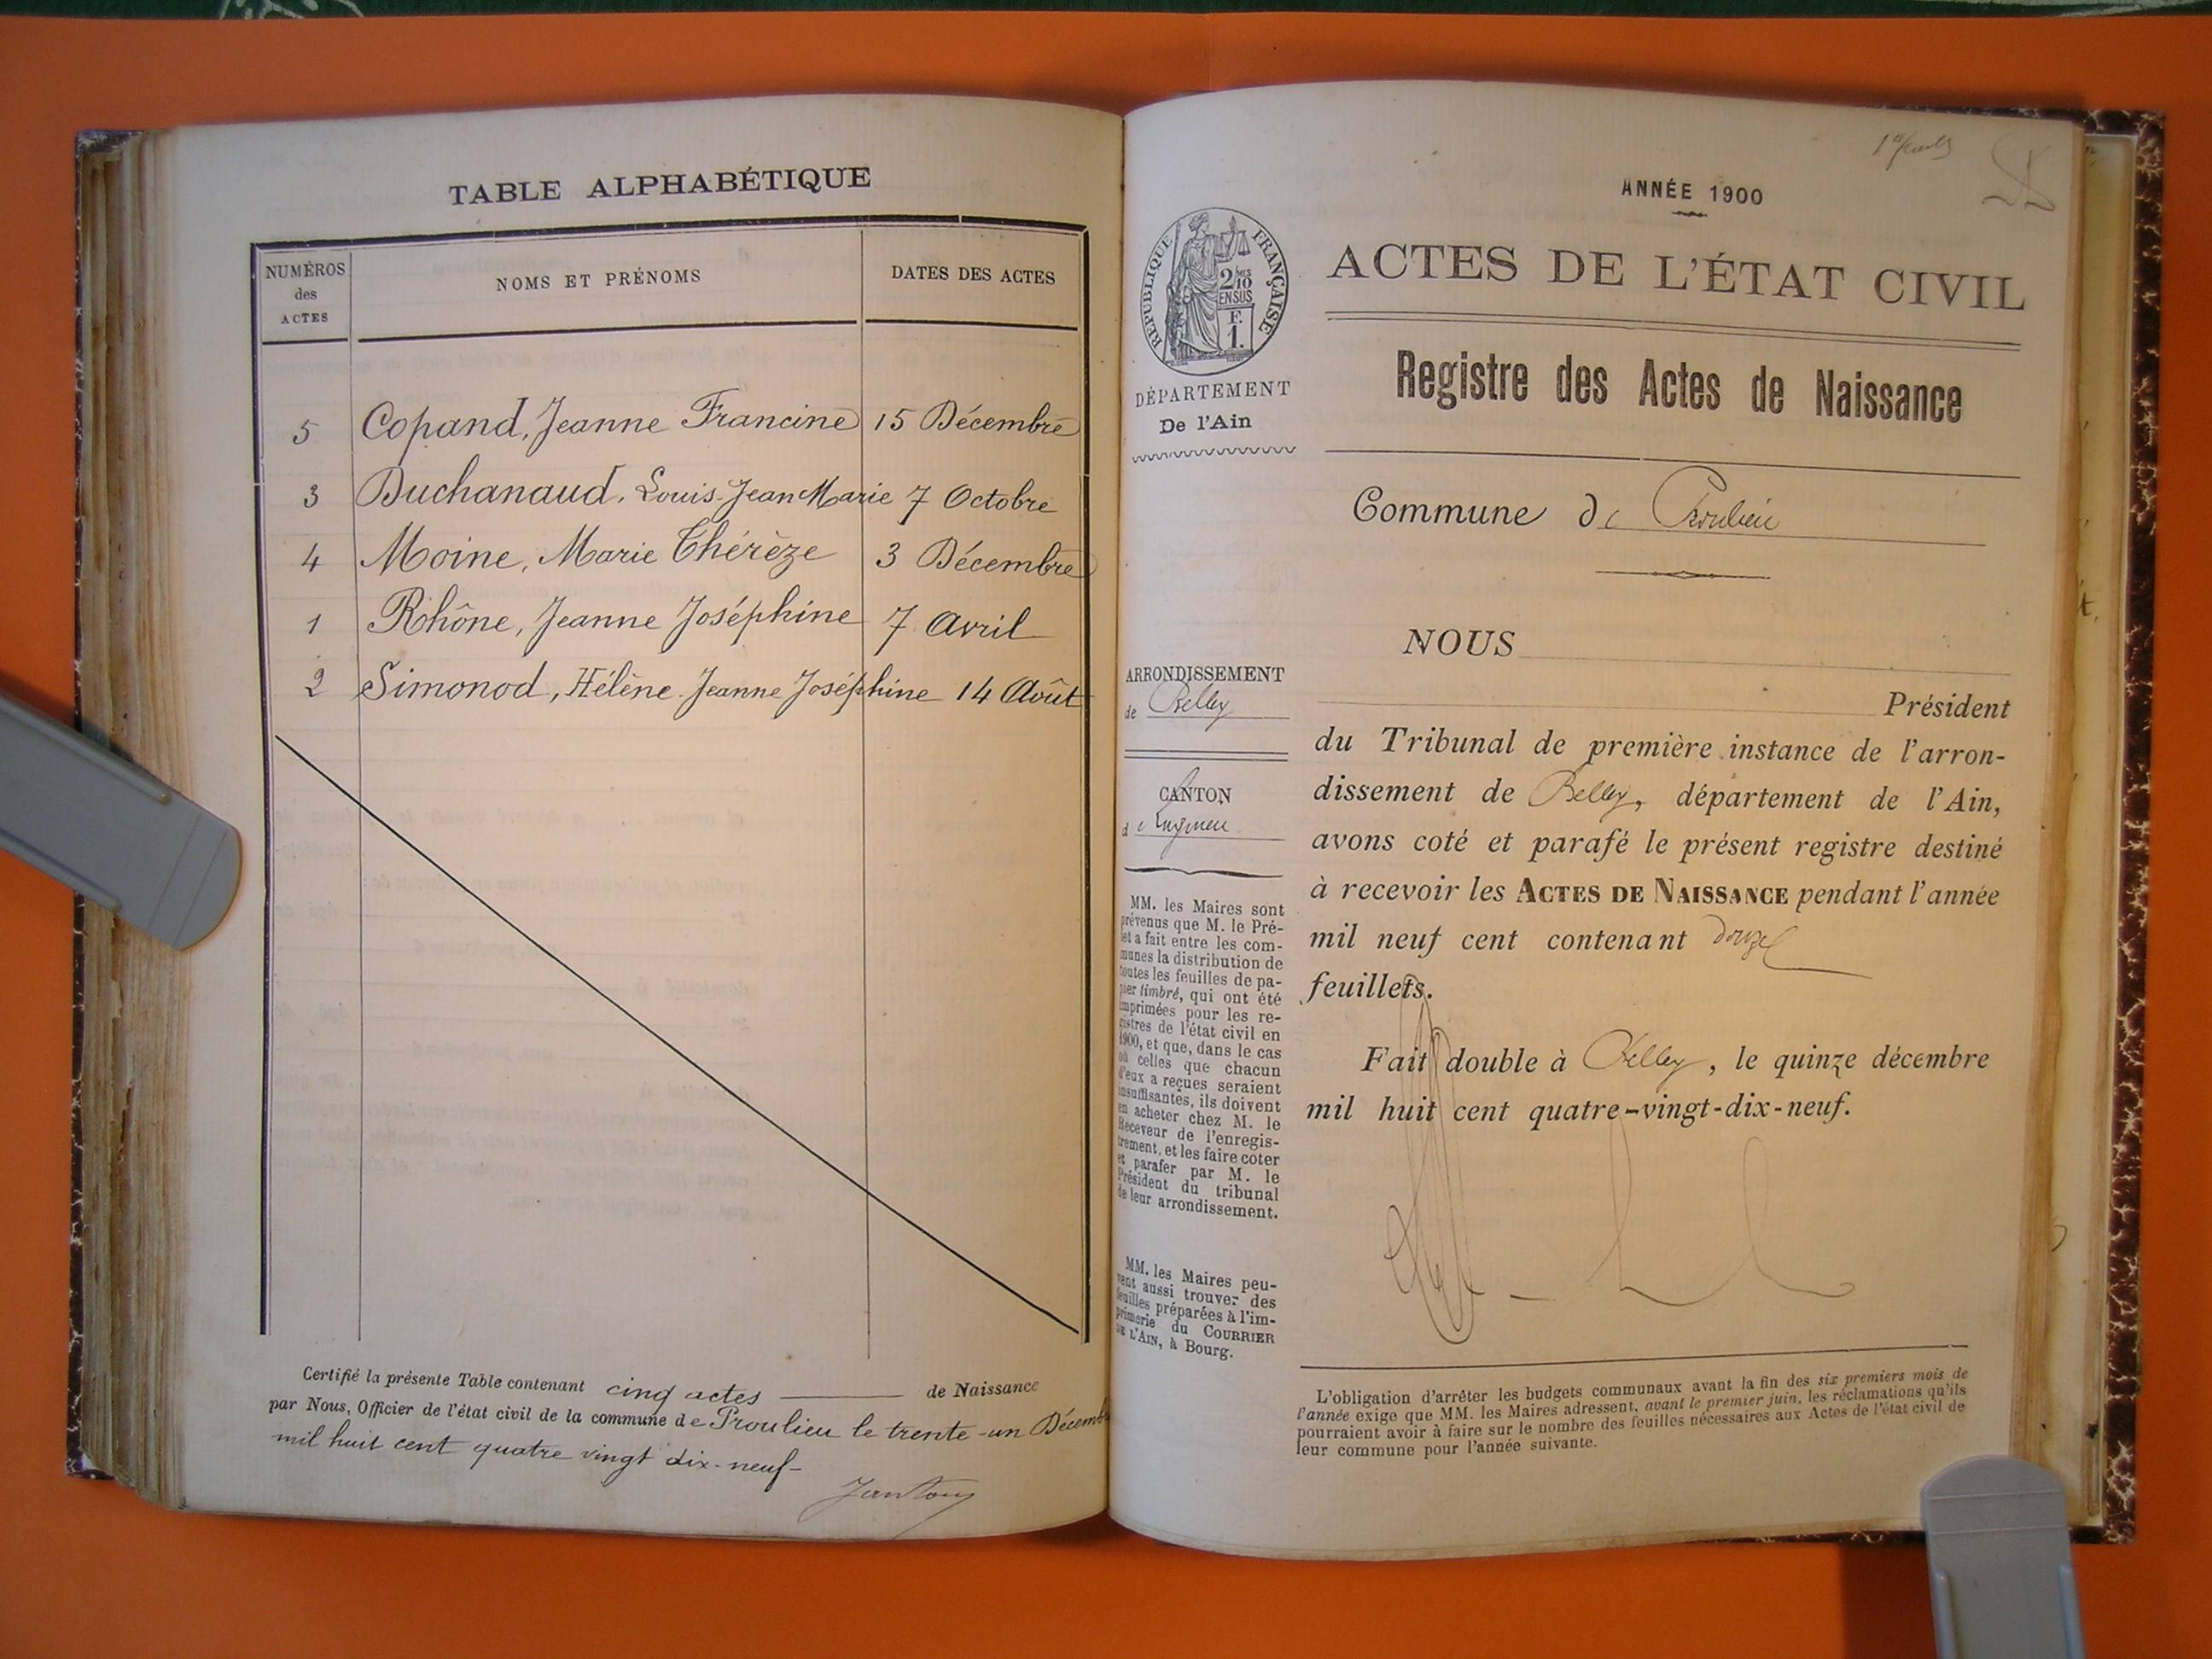 TABLE ALPHABÉTIQUE
NUMÉROS
des
ACTES
NOMS ET PRÉNOMS
DATES DES ACTES
5 Copand, Jeanne Francine 15 Décembre
3 Duchanaud, Louis-Jean Marie 7 Octobre
4 Moine, Marie Thérèze 3 Décembre
1 Rhône, Jeanne Joséphine 7 Avril
2 Simonod, Hélène-Jeanne Joséphine 14 Août
Certifié la présente Table contenant cinq actes de Naissance
par Nous, Officier de l'état civil de la commune de Proulieu le trente-un Décemb
mil huit cent quatre vingt dix-neuf-
ANNÉE 1900
ACTES DE L'ÉTAT CIVIL
Registre des Actes de Naissance
Commune de Proulieu
REPUBLIQUE FRANÇAISE
2/10
EN SUS
F.
1.
DÉPARTEMENT
De l'Ain
ARRONDISSEMENT
de Belley
CANTON
de Lagnieu
MM. les Maires sont
prévenus que M. le Pré-
fet a fait entre les com-
munes la distribution de
toutes les feuilles de pa-
pier timbré, qui ont été
imprimées pour les re-
gistres de l'état civil en
1900, et que, dans le cas
où celles que chacun
d'eux a reçues seraient
insuffisantes, ils doivent
en acheter chez M. le
Receveur de l'enregis-
trement, et les faire coter
et parafer par M. le
Président du tribunal
de leur arrondissement.
MM. les Maires peu-
vent aussi trouver des
feuilles préparées à l'im-
primerie du COURRIER
DE L'AIN, à Bourg.
NOUS
Président
du Tribunal de première instance de l'arron-
dissement de Belley, département de l'Ain,
avons coté et parafé le présent registre destiné
à recevoir les ACTES DE NAISSANCE pendant l'année
mil neuf cent contenant douze
feuillets.
Fait double à Belley, le quinze décembre
mil huit cent quatre-vingt-dix-neuf.
L'obligation d'arrêter les budgets communaux avant la fin des six premiers mois de
l'année exige que MM. les Maires adressent, avant le premier juin, les réclamations qu'ils
pourraient avoir à faire sur le nombre des feuilles nécessaires aux Actes de l'état civil de
leur commune pour l'année suivante.